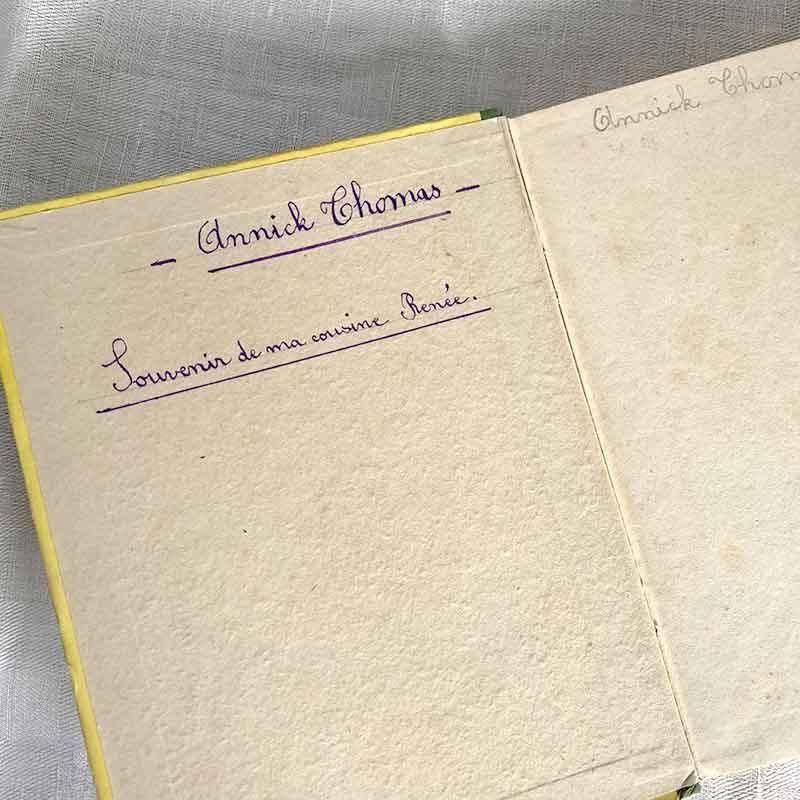 - Annick Thomas -
Souvenir de ma cousine Renée.
Annick Thom